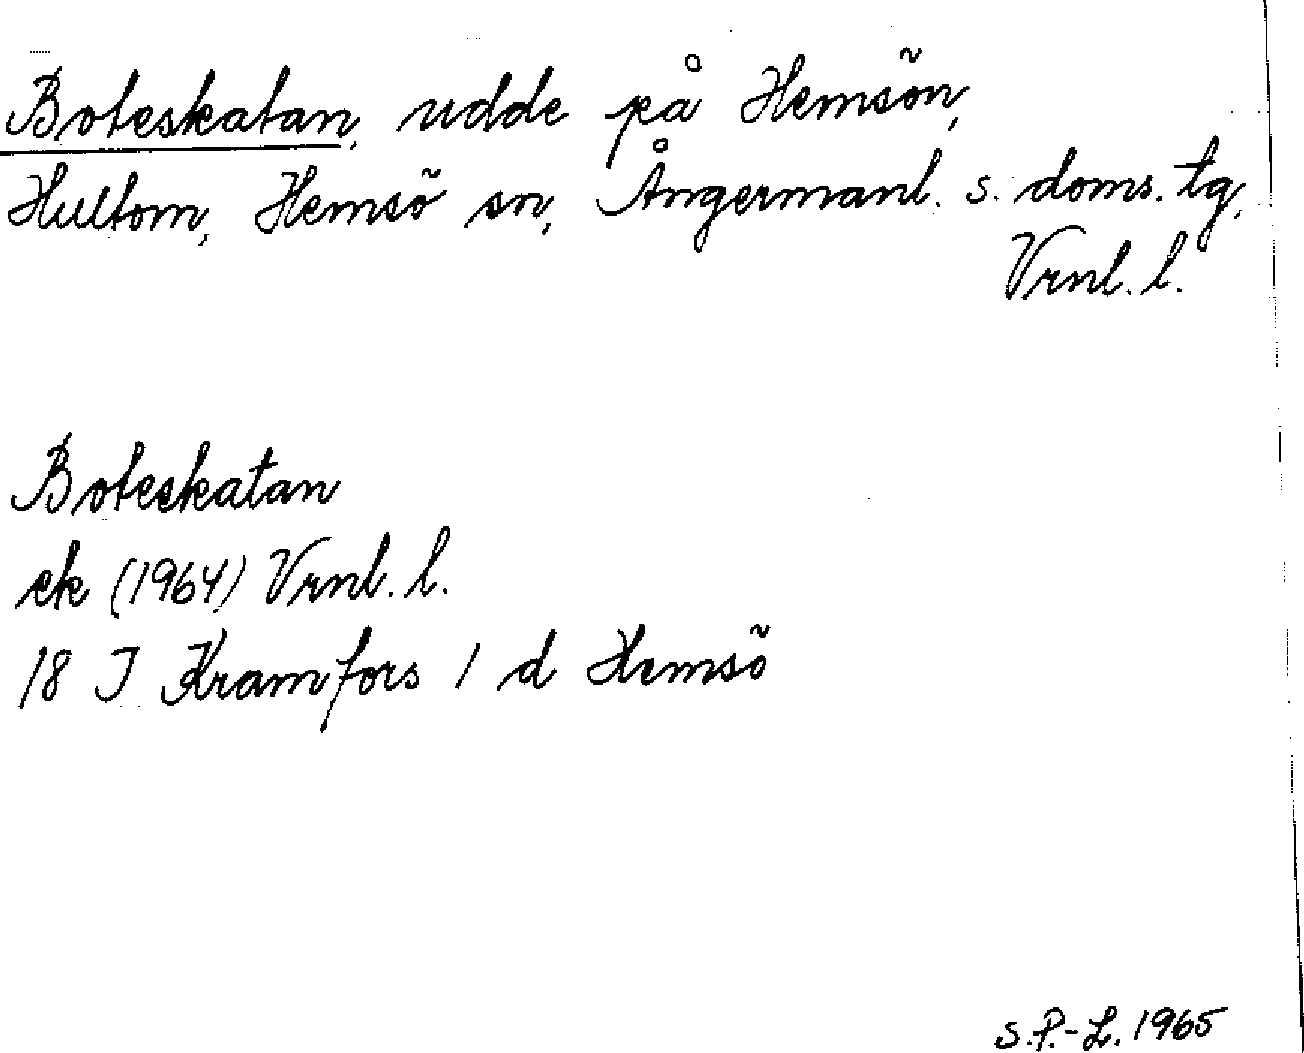 Boteskatan, udde på Hemsön,
Hultom, Hemsö sn, Ångermanl. s. doms. tg,
Vrnl. l.
Boteskatan
ek (1964) Vrnl. l.
18 I Kramfors 1 d Hemsö
S.P.-L. 1965